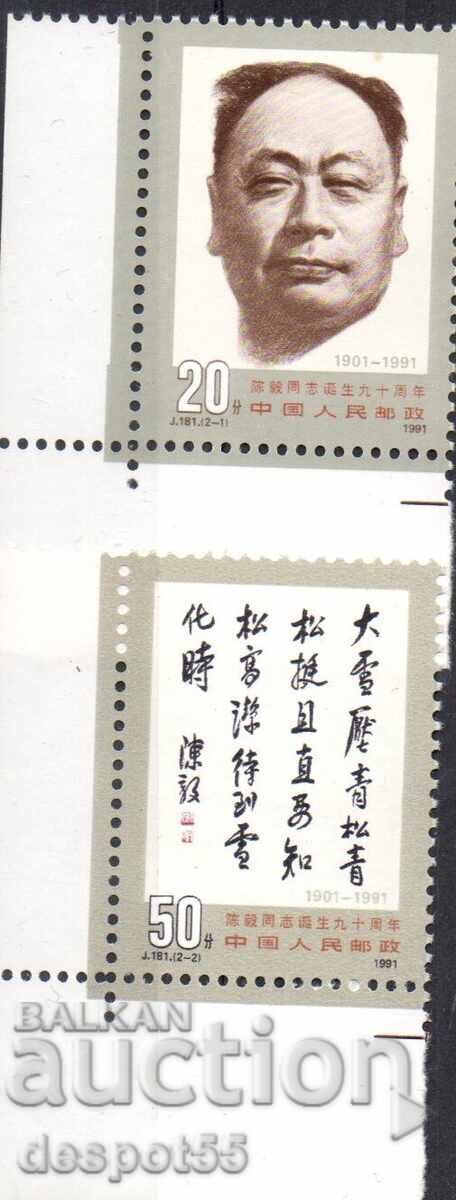 1901-1991
20分
陈毅同志诞生九十周年
中国人民邮政
J.181.(2-1)
1991
大雪壓青松青
松挺且直要知
松高潔待到雪
化時
陳毅
1901-1991
50分
陈毅同志诞生九十周年
中国人民邮政
J.181.(2-2)
1991
BALKAN
auction
despot55